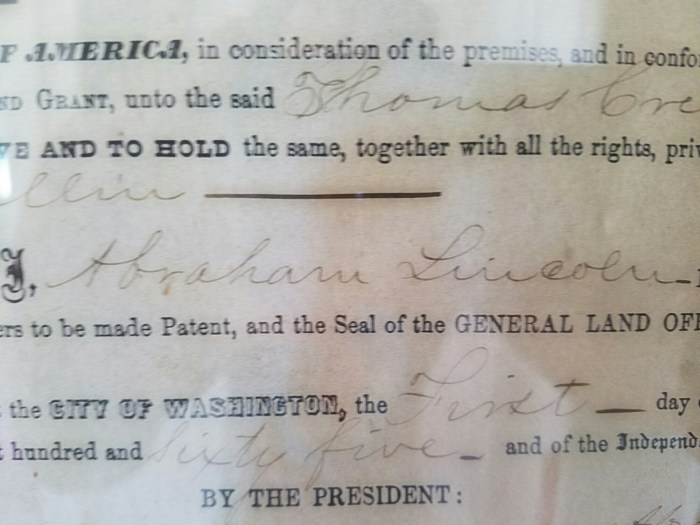 F AMERICA, in consideration of the premises, and in confo
ND GRANT, unto the said Thomas Cre
VE AND TO HOLD the same, together with all the rights, priv
llin
I, Abraham Lincoln
ers to be made Patent, and the Seal of the GENERAL LAND OFF
the CITY OF WASHINGTON, the First day
hundred and sixty five and of the Independ
BY THE PRESIDENT: